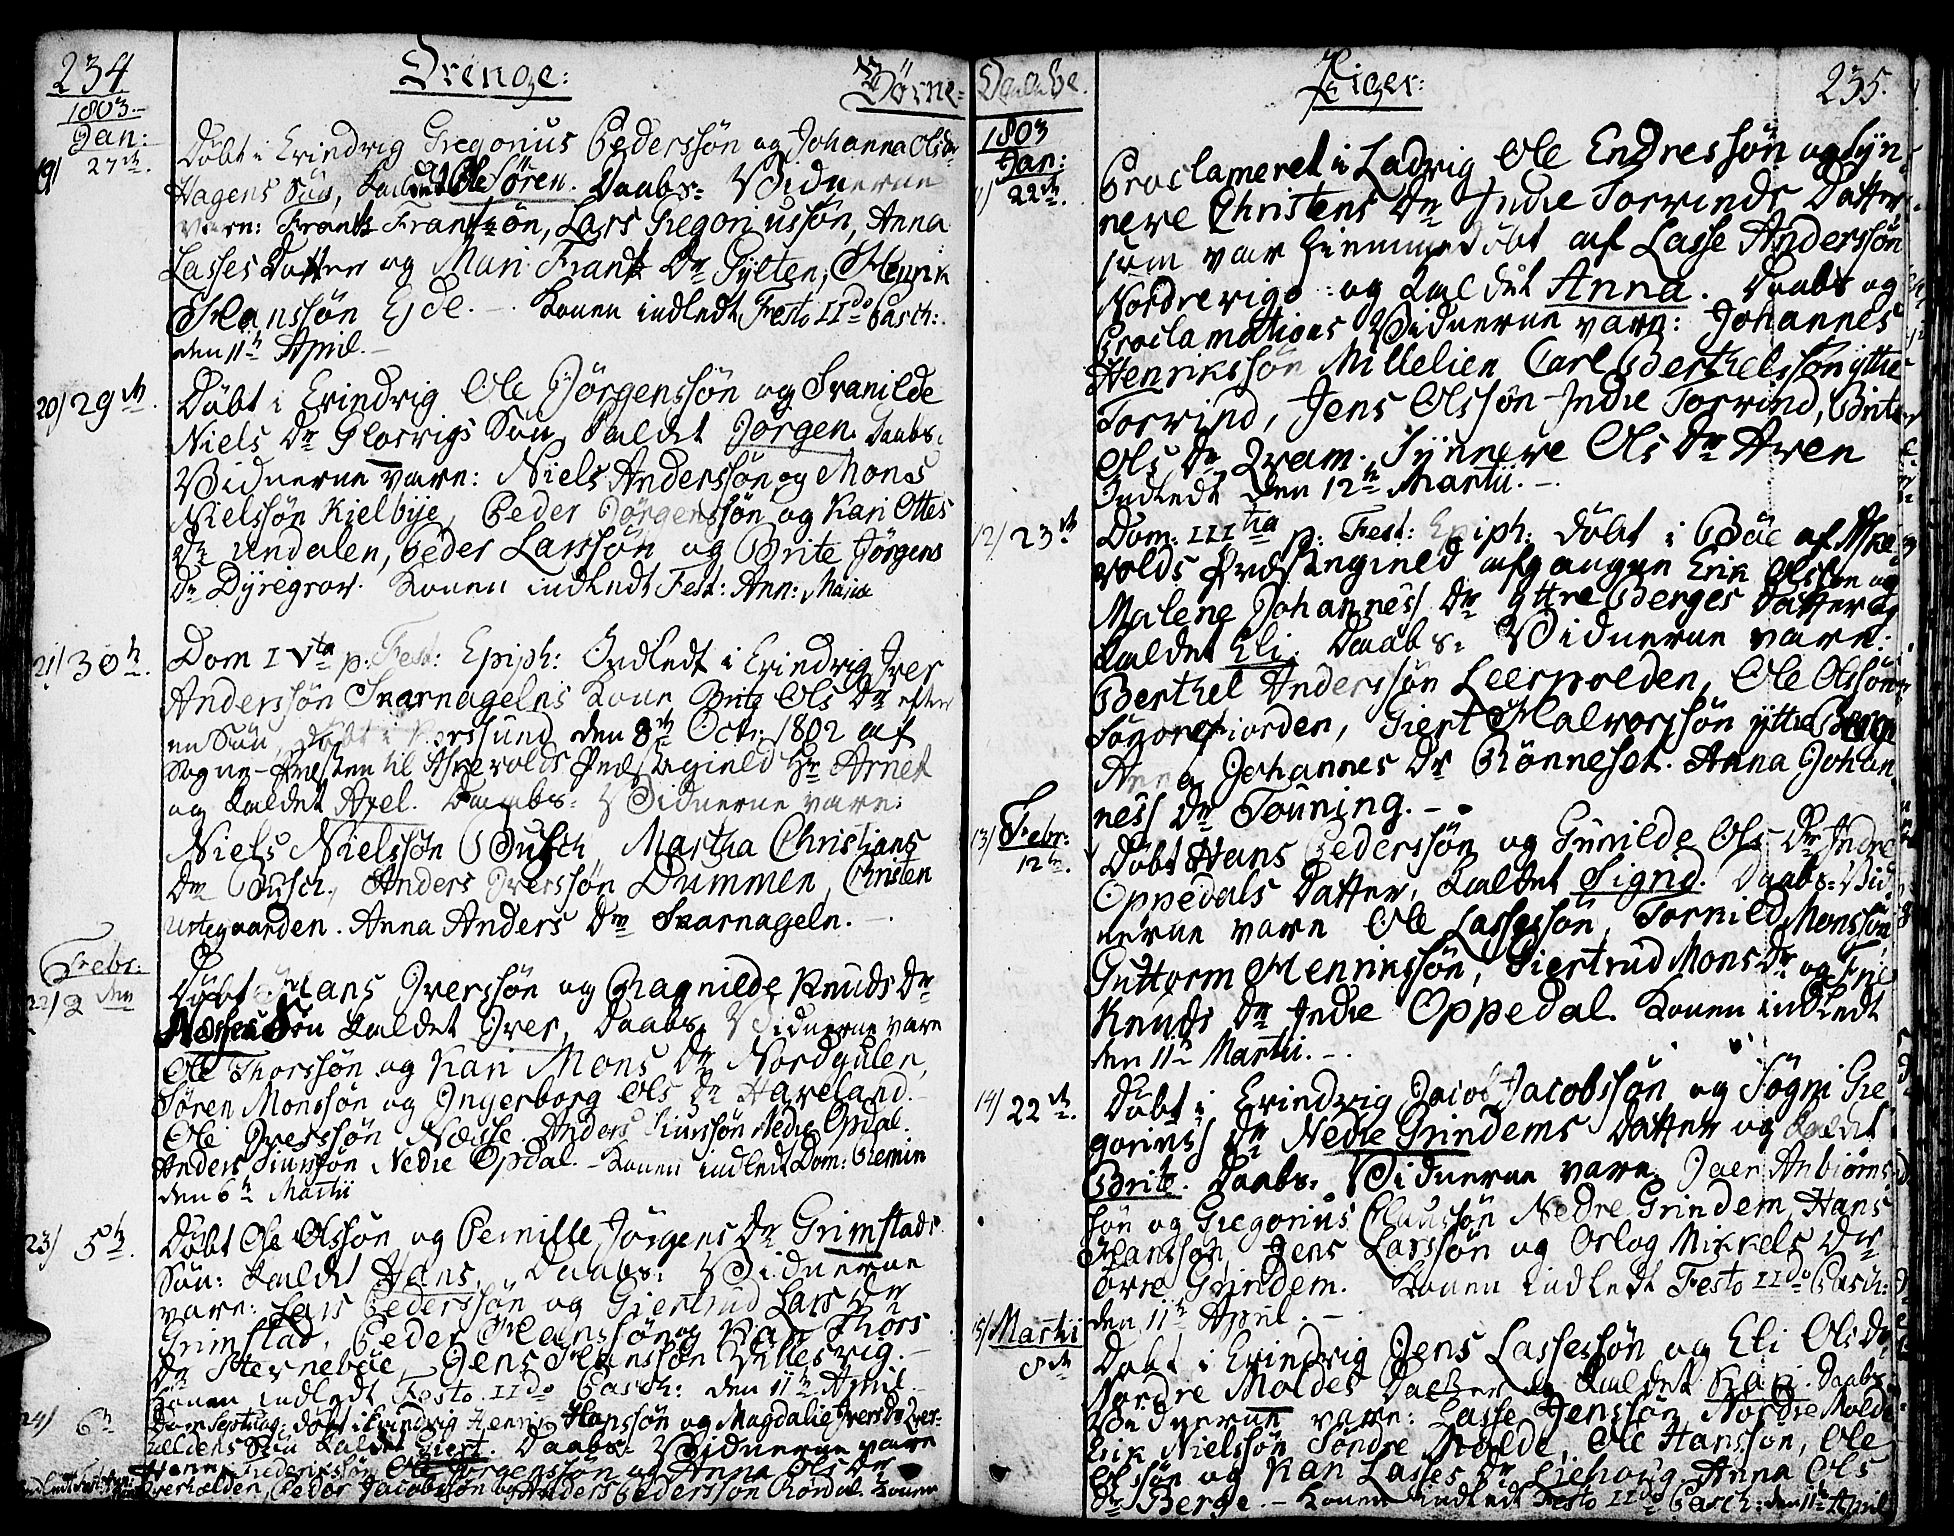 234
Drenge:
Börne-
1803.
Jan:
19) 27de.
Döbt i Evindvig Gregorius Pederssön og Johanna Ols Dr
Hagens Sön, kaldet Ole Sören. Daabs- Vidnerne
varn: Frantz Frantzön, Lars Gregoriussön, Anna
Lasses Datter og Mari Frantz Dr Gylten, Henrik
Hanssön Eide. - Konen indledt Festo IIdo Pasch:
den 11te April.-
20) 29de.
Döbt i Evindvig Ole Jörgenssön og Svanilde
Niels Dr Glosvigs Sön, kaldet Jörgen. Daabs-
Vidnerne vare: Niels Anderssön og Mons
Nielssön Kielbye, Peder Jörgenssön og Kari Ottes
Dr Undalen, Peder Larssön og Brite Jörgens
Dr Dyregrov. Konen indledt Fest: Ann: Mariæ
21) 30te.
Dom IVta p. Fest: Epiph: Indledt i Evindvig Iver
Anderssön Skarnagelns Kone Brite Ols Dr efter
en Sön, döbt i den 8de Octr: 1802 af
Sogne-Præsten til Askevolds Præstegield Hr Arnet
og kaldet Axel. Daabs- Vidnerne vare:
Niels Nielssön Busch, Martha Christians
Dr Busch, Anders Iverssön Dummen, Christen
Urtegaarden. Anna Anders Dr Skarnageln.
Febr:
22) 2den
Döbt Hans Iverssön og Ragnilde Knuds Dr
Næsses Sön kaldet Iver, Daabs- Vidnerne vare
Ole Thorssön og Kari Mons Dr Nordgulen,
Sören Monssön og Ingerborg Ols Dr Haveland.
Ole Iverssön Næsse. Anders Siurssön Nedre Opdal.
Anders Siurssön Nedre Opdal. - Konen indledt Dom: Remin
den 6te Martii
23) 5te.
Döbt Ole Olssön og Pernille Jörgens Dr Grimstads
Sön: kaldet Hans. Daabs- Vidnerne
vare: Lars Pederssön og Giertrud Lars Dr
Grimstad, Peder Hanssön og Kari Thors
Dr Herneböe, Jens Hanssön Villesvig.-
Konen indledt Festo IIdo Pasch: den 11te April.-
24) 6te
Dom Septuag: döbt i Evindvig Henrik Hanssön og Magdalie Ivers Dr Qver-
Sön kaldet Siert. Daabs- Vidnerne vare
Henrik Ole Jörgenssön og Anna Ols Dr
Peder Jacobssön og Anders Pederssön Konen
Daabe.
Piger:
235.
1803
Jan:
11) 22de.
Proclameret i Ladvig Ole Endressön og Syn-
nere Christens Dr Indre Torvinds Datter
som var hiemmedöbt af Lasse Anderssön
Nordrevigs og kaldet Anna. Daabs og
Proclamations Vidnerne vare: Johannes
Henrikssön Millelien Carl Berthelssön ytre
Torvind, Jens Olssön Indre Torvind, Brite
Ols Dr Qvam. Synnere Ols Dr Aven
Indledt den 12te Martii.-
12) 23de
Dom: IIItia p. Fest: Epiph: döbt i Böe af Aske-
volds Præstegield afgangen Erik Olssön og
Malene Johanness Dr yttre Berges Datter og
kaldet Eli. Daabs- Vidnerne vare:
Berthel Anderssön Leervolden, Ole Olssön
Siert Halvorssön yttre Berge
Anna Johannes Dr Rönneset. Anna Johan-
ness Dr Touning.-
13) Febr:
12te.
Döbt Hans Pederssön og Gunilde Ols Dr Indre
Oppedals Datter, kaldet Sigrid. Daabs- Vid-
nerne vare Ole Lassessön, Torkild Monssön,
Guttorm Henrikssön, Giertrud Mons Dr og
Knuds Dr Indre Oppedal. Konen indledt
den 11te Martii.-
14) 22de.
Döbt i Evindvig Jacob Jacobssön og Sögni Gre-
goriuss Dr Nedre Grindems Datter og kaldet
Brite. Daabs- Vidnerne vare Joen Anbiörns-
sön og Gregorius Claussön Nedre Grindem, Hans
Hanssön, Jens Larssön og Orlog Mikkels Dr
övre Grindem. Konen indledt Festo IIdo Pasch:
den 11te April.-
15) Martii
8de
Döbt i Evindvig Jens Lassessön og Eli Ols Dr
Nordre Moldes Datter og kaldet Kari. Daabs-
Vidnerne vare: Lasse Jenssön Nordre Molde
Erik Nielssön Söndre Molde, Ole Hanssön, Ole
Olssön og Kari Lasses Dr Anna Ols
Dr Berge. - Konen indledt Festo IIdo Pasch: den 11te April